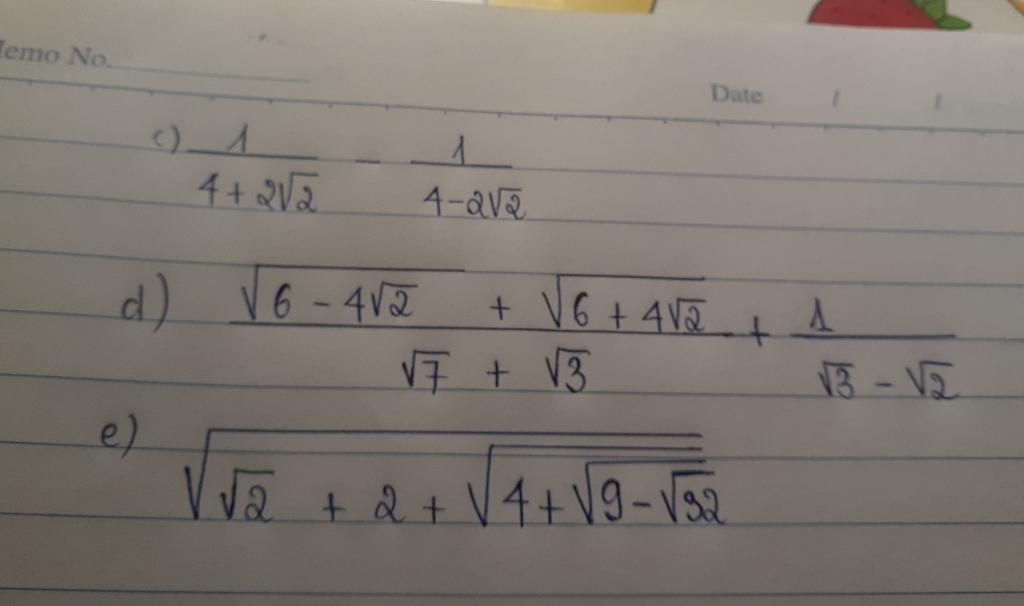 Memo No.
Date / /
c) 1/(4+2√2) − 1/(4−2√2)
d) (√(6−4√2) + √(6+4√2))/(√7 + √3) + 1/(√3 − √2)
e) √(√2 + 2 + √(4+√(9−√32)))